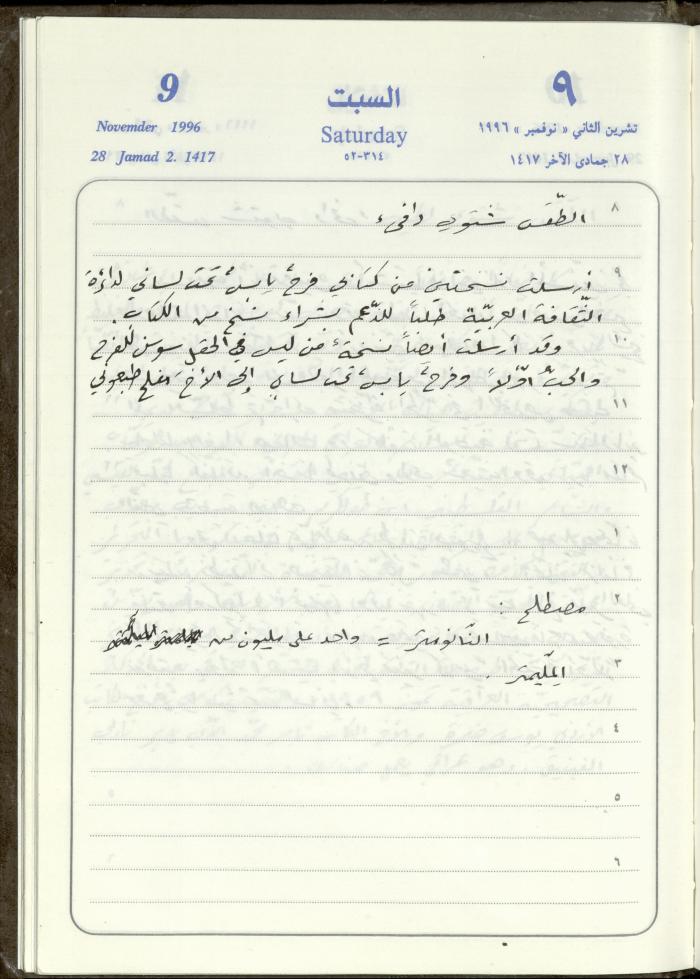 9
November 1996
28 Jamad 2. 1417
السبت
Saturday
٥٢-٣١٤
٩
تشرين الثاني « نوفمبر » ١٩٩٦
٢٨ جمادى الآخر ١٤١٧
٨ الطّقس شتوي دافىء
٩ أرسلت نسختين من كتابي فرحٌ يابسٌ تحت لساني لدائرة
الثّقافة العربيّة طلباً للدّعم بشراء نسخ من الكتاب.
١٠ وقد أرسلت أيضاً نسخة من ليس في الحقل سوسن للفرح
والحبُّ أوّلاً وفرحٌ يابسٌ تحت لساني إلى الأخ مفلح طبعوني
١١
١٢
١
٢ مصطلح :
النّانومتر = واحد على مليون من
٣ المِلّيمتر.
٤
٥
٦